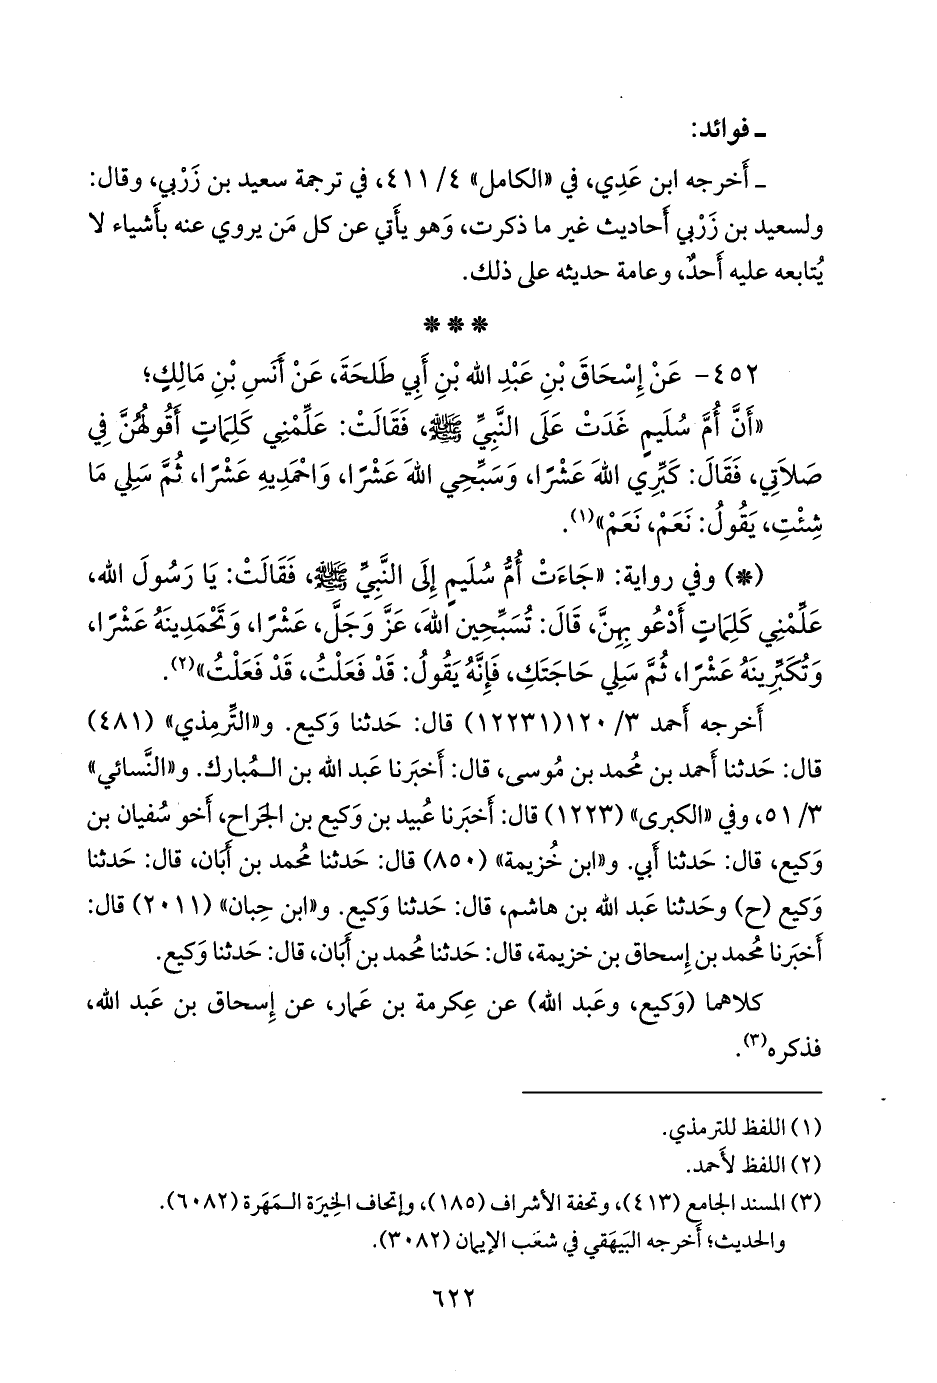 ـ فوائد:
ـ أَخرجه ابن عَدِي، في «الكامل» ٤/ ٤١١، في ترجمة سعيد بن زَرْبي، وقال:
ولسعيد بن زَرْبي أَحاديث غير ما ذكرت، وَهو يأتي عن كل مَن يروي عنه بأَشياء لا
يُتابعه عليه أَحدٌ، وعامة حديثه على ذلك.
***
٤٥٢- عَنْ إِسْحَاقَ بْنِ عَبْدِ الله بْنِ أَبِي طَلحَةَ، عَنْ أَنَسِ بْنِ مَالِكٍ؛
«أَنَّ أُمَّ سُلَيمٍ غَدَتْ عَلَى النَّبِيِّ ﷺ، فَقَالَتْ: عَلِّمْنِي كَلِمَاتٍ أَقُولُهُنَّ فِي
صَلاَتِي، فَقَالَ: كَبِّرِي اللهَ عَشْرًا، وَسَبِّحِي اللهَ عَشْرًا، وَاحْمَدِيهِ عَشْرًا، ثُمَّ سَلِي مَا
شِئْتِ، يَقُولُ: نَعَمْ، نَعَمْ»(١).
(*) وفي رواية: «جَاءَتْ أُمُّ سُلَيمٍ إِلَى النَّبِيِّ ﷺ، فَقَالَتْ: يَا رَسُولَ الله،
عَلِّمْنِي كَلِمَاتٍ أَدْعُو بِهِنَّ، قَالَ: تُسَبِّحِين اللهَ، عَزَّ وَجَلَّ، عَشْرًا، وَتَحْمَدِينَهُ عَشْرًا،
وَتُكَبِّرِينَهُ عَشْرًا، ثُمَّ سَلِي حَاجَتَكِ، فَإِنَّهُ يَقُولُ: قَدْ فَعَلْتُ، قَدْ فَعَلْتُ»(٢).
أَخرجه أَحمد ٣/ ١٢٠(١٢٢٣١) قال: حَدثنا وَكيع. و«التِّرمِذي» (٤٨١)
قال: حَدثنا أَحمد بن مُحمد بن مُوسى، قال: أَخبَرنا عَبد الله بن الـمُبارك. و«النَّسائي»
٣/ ٥١، وفي «الكبرى» (١٢٢٣) قال: أَخبَرنا عُبيد بن وَكيع بن الجَراح، أَخو سُفيان بن
وَكيع، قال: حَدثنا أَبي. و«ابن خُزيمة» (٨٥٠) قال: حَدثنا مُحمد بن أَبَان، قال: حَدثنا
وَكيع (ح) وحَدثنا عَبد الله بن هاشم، قال: حَدثنا وَكيع. و«ابن حِبان» (٢٠١١) قال:
أَخبَرنا مُحمد بن إِسحاق بن خزيمة، قال: حَدثنا مُحمد بن أَبَان، قال: حَدثنا وَكيع.
كلاهما (وَكيع، وعَبد الله) عن عِكرمة بن عَمار، عن إِسحاق بن عَبد الله،
فذكره(٣).
(١) اللفظ للترمذي.
(٢) اللفظ لأَحمد.
(٣) المسند الجامع (٤١٣)، وتحفة الأشراف (١٨٥)، وإتحاف الخِيرَة الـمَهَرة (٦٠٨٢).
والحديث؛ أَخرجه البَيهَقي في شعَب الإيمان (٣٠٨٢).
٦٢٢